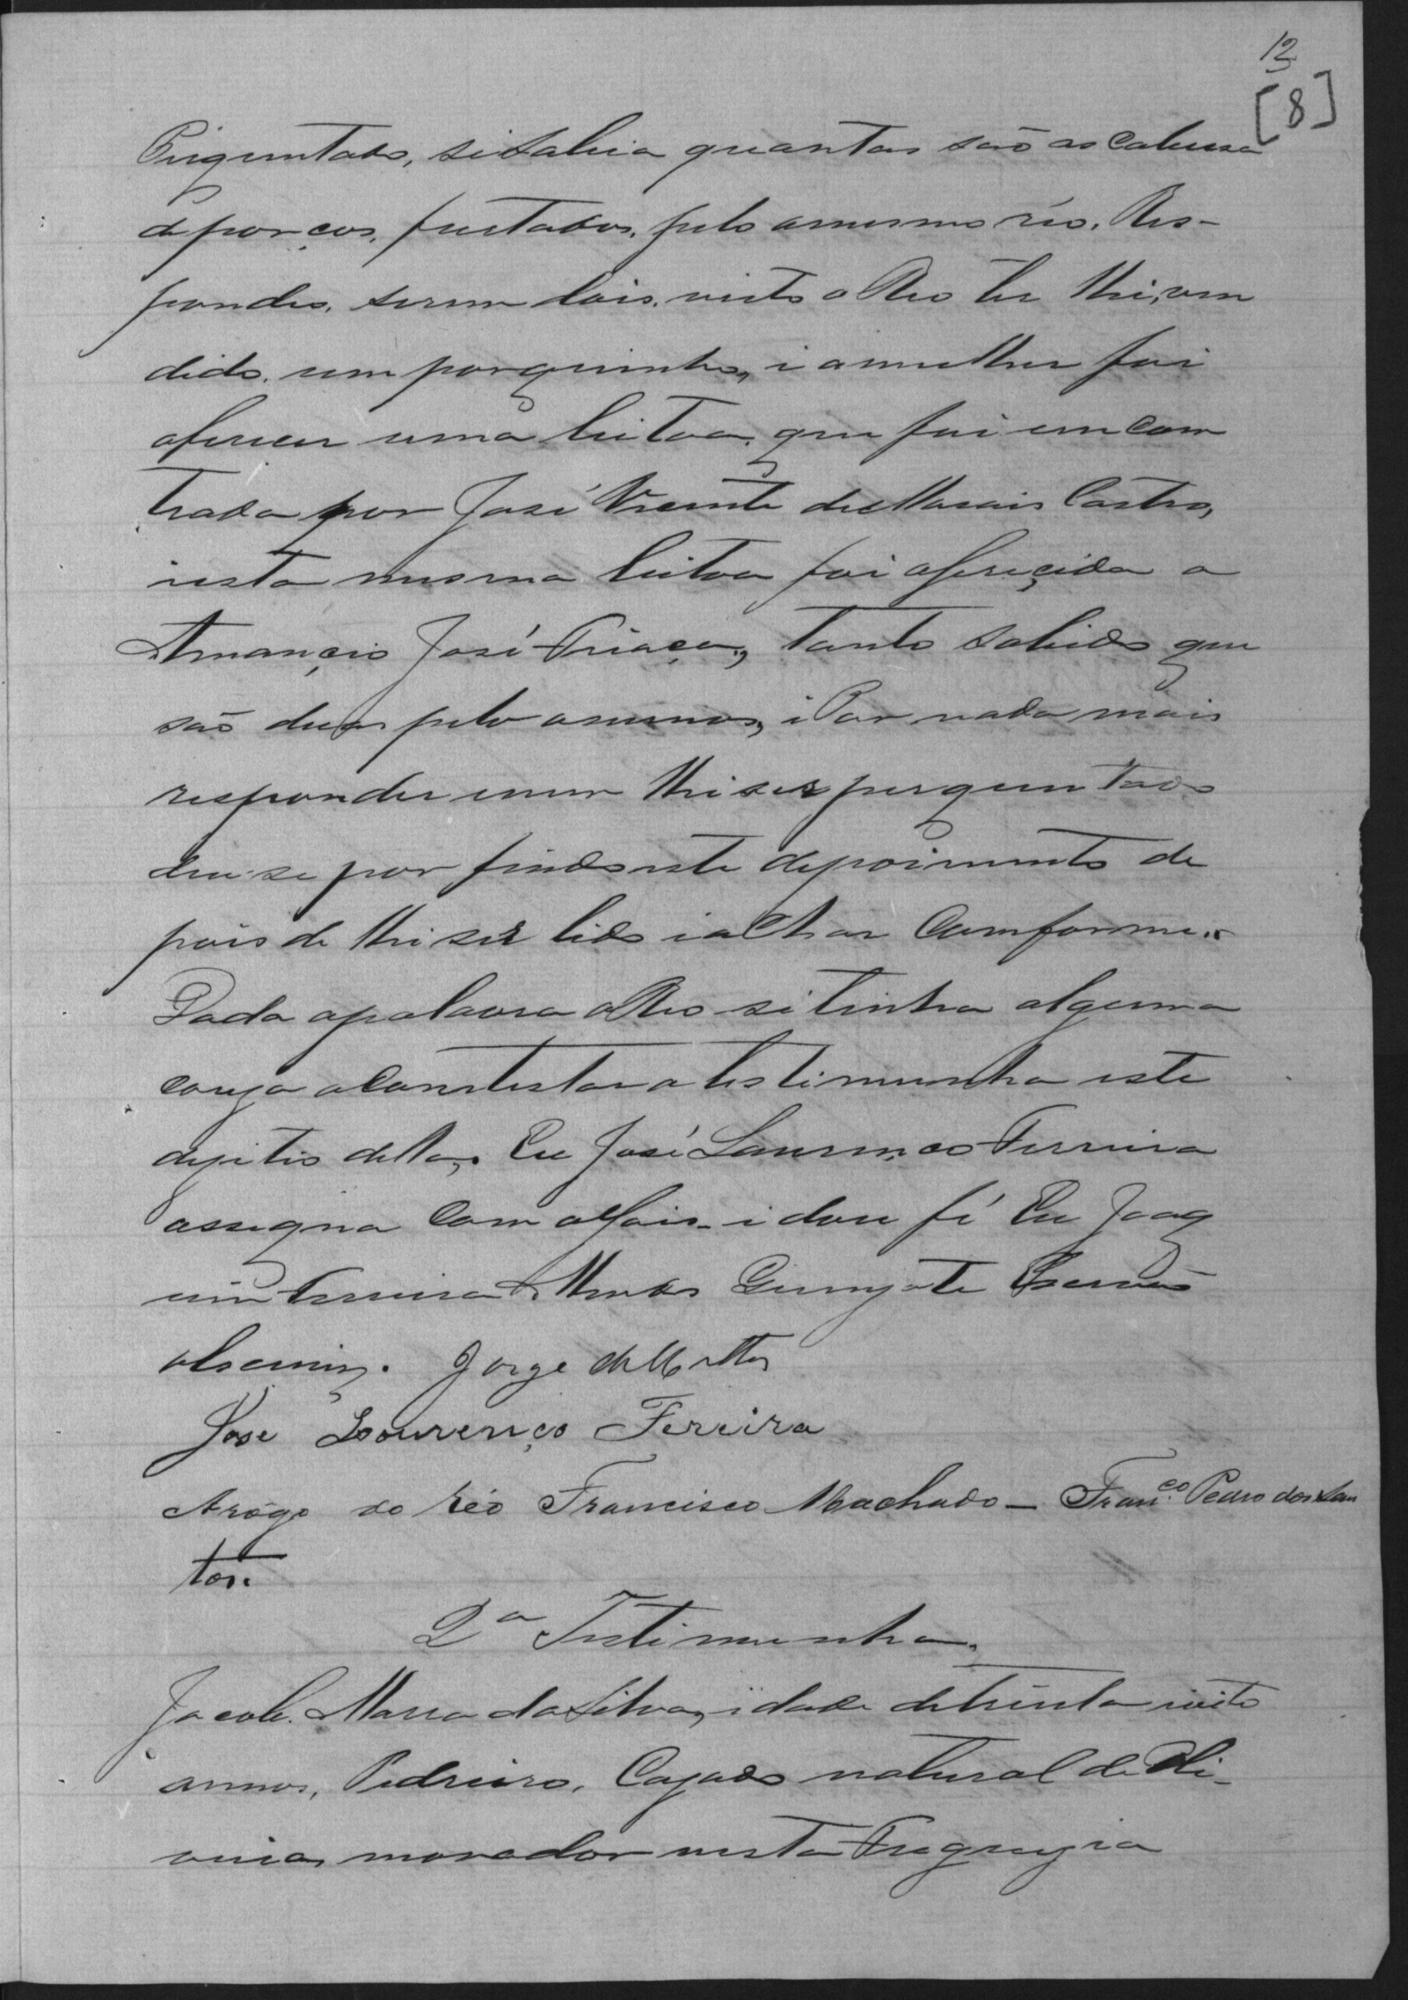 12
[8]
Perguntado, si sabia quantas são as cabessa
de porcos, furtados, pelo a mesmo réo. Res-
pondeo, serem dois, visto o Reo ter lhi, ven
dido, um porquinho, i a mulher foi
oferecer uma leitoa, que foi emcom
trada por José Vicente de Morais Castro,
i esta mesma leitoa foi ofereçida a
Amançio José Friaça, tanto sabido que
são duas pelo a menos, i Por nada mais
responder e nem lhi ser perguntado
deu-se por findo este depoimento de
pois de lhi ser lido i achar comforme.
Dada a palavra o Reo si tinha alguma
couza a Contestar a testimunha este
dejitio della, Eu José Laurenço Ferreira
assigna com o Juis i dou fé Eu Joaq
uim Ferreira Escrivão
o Iscrivy. Jorge de Mattos
Jose Lourenço Fereira
Arógo do réo Francisco Machado — Fran.co Pedro dos San
tos.
2a Testimunha,
Jacob. Maria da Silva, idade de trinta i oito
annos, Pedreiro, Cazado natural de Oli-
veira, morador nesta Freguezia